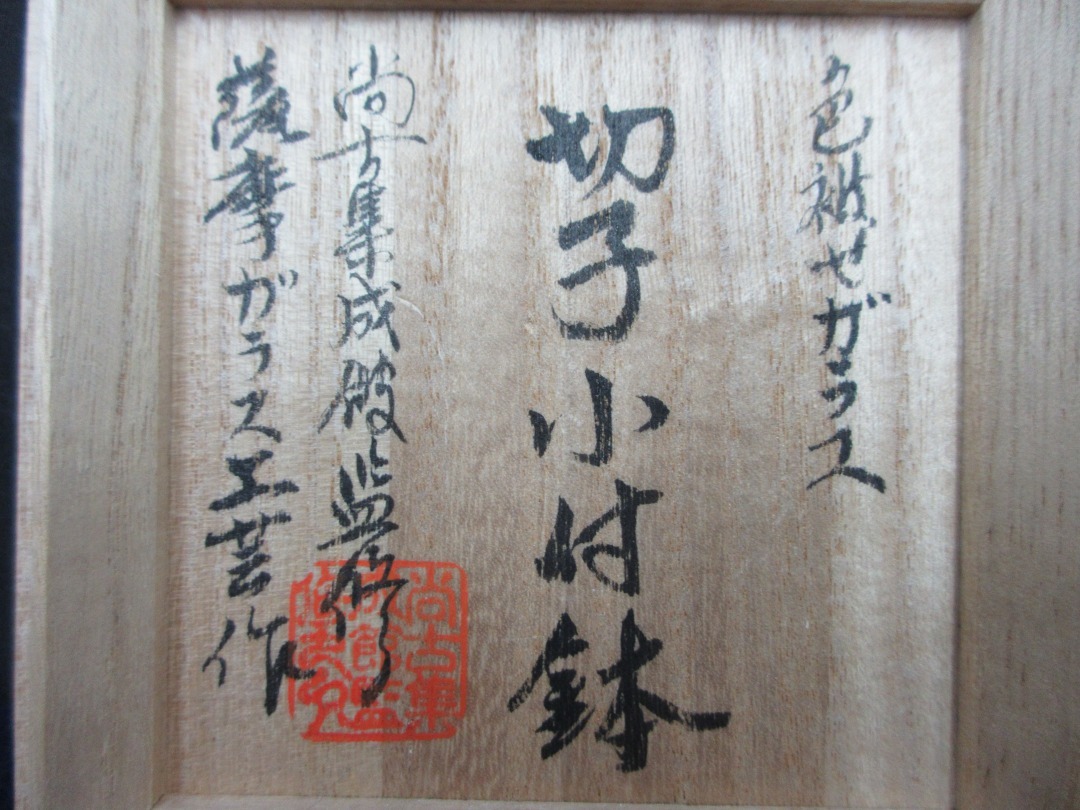 色被せガラス
切子小付鉢
尚古集成館監修
薩摩ガラス工芸作
尚古集
成館監
修之印